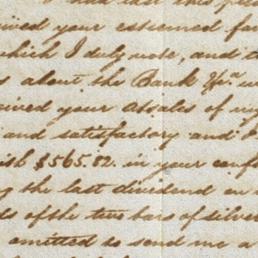 ived your esteemed fa
which I duly note, and t
s about the Bank &ca. w
eived your a/sales of my
and satisfactory and I
ish $565.82. in your conf
g the last dividend on
ds of the two bars of silver
omitted to send me a